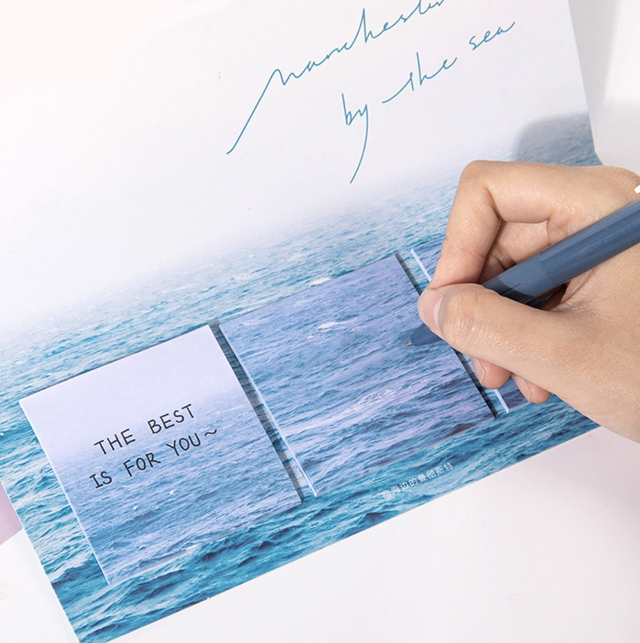 manchester
by the sea
THE BEST
IS FOR YOU~